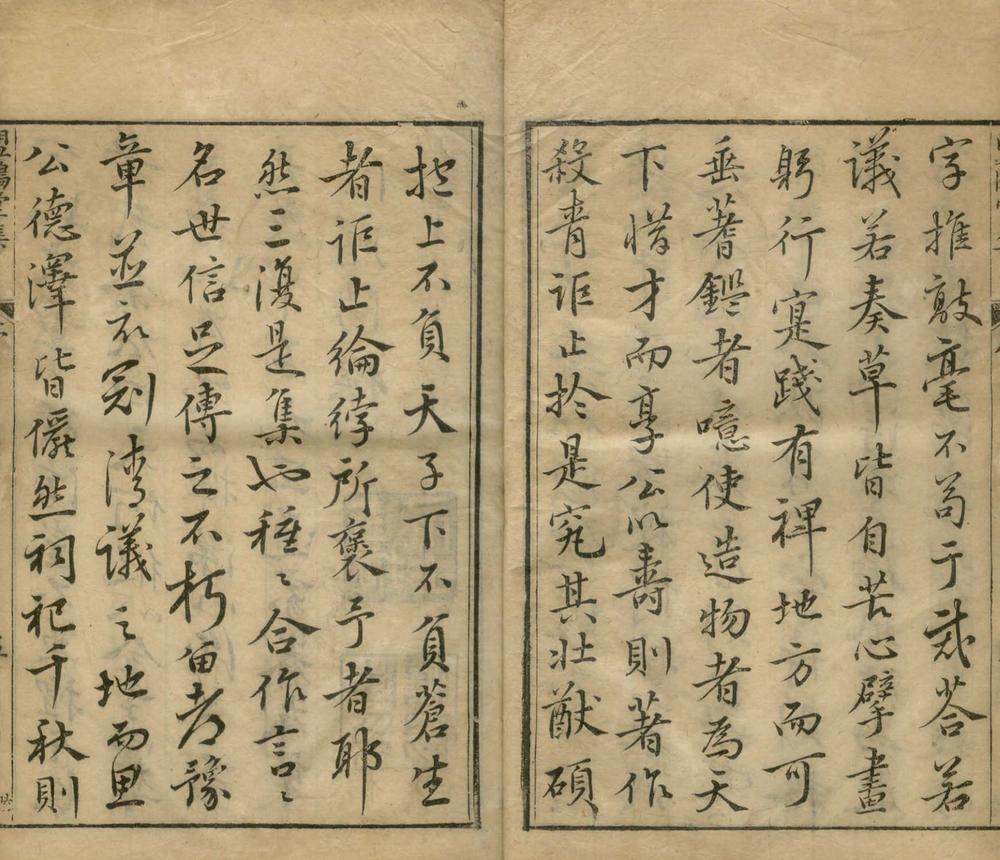 字推敲毫不苟于裁答若
議若奏草皆自苦心擘畫
躬行寔踐有裨地方而可
垂蓍鑑者噫使造物者為天
下惜才而享公以壽則著作
殺青詎止於是究其壯猷碩
抱上不負天子下不負蒼生
者詎止綸綍所褒予者耶
然三復是集也種〻合作言〻
名世信足傳之不朽豫
章並衣冠灣議之地而思
公德澤皆儼然祠祀千秋則